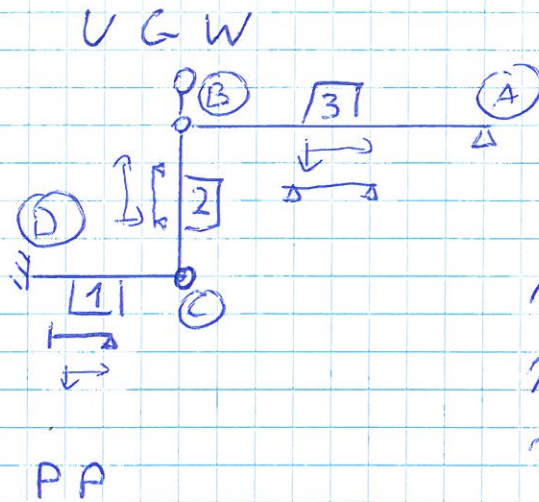 U G W
B
3
A
2
D
1
C
P P